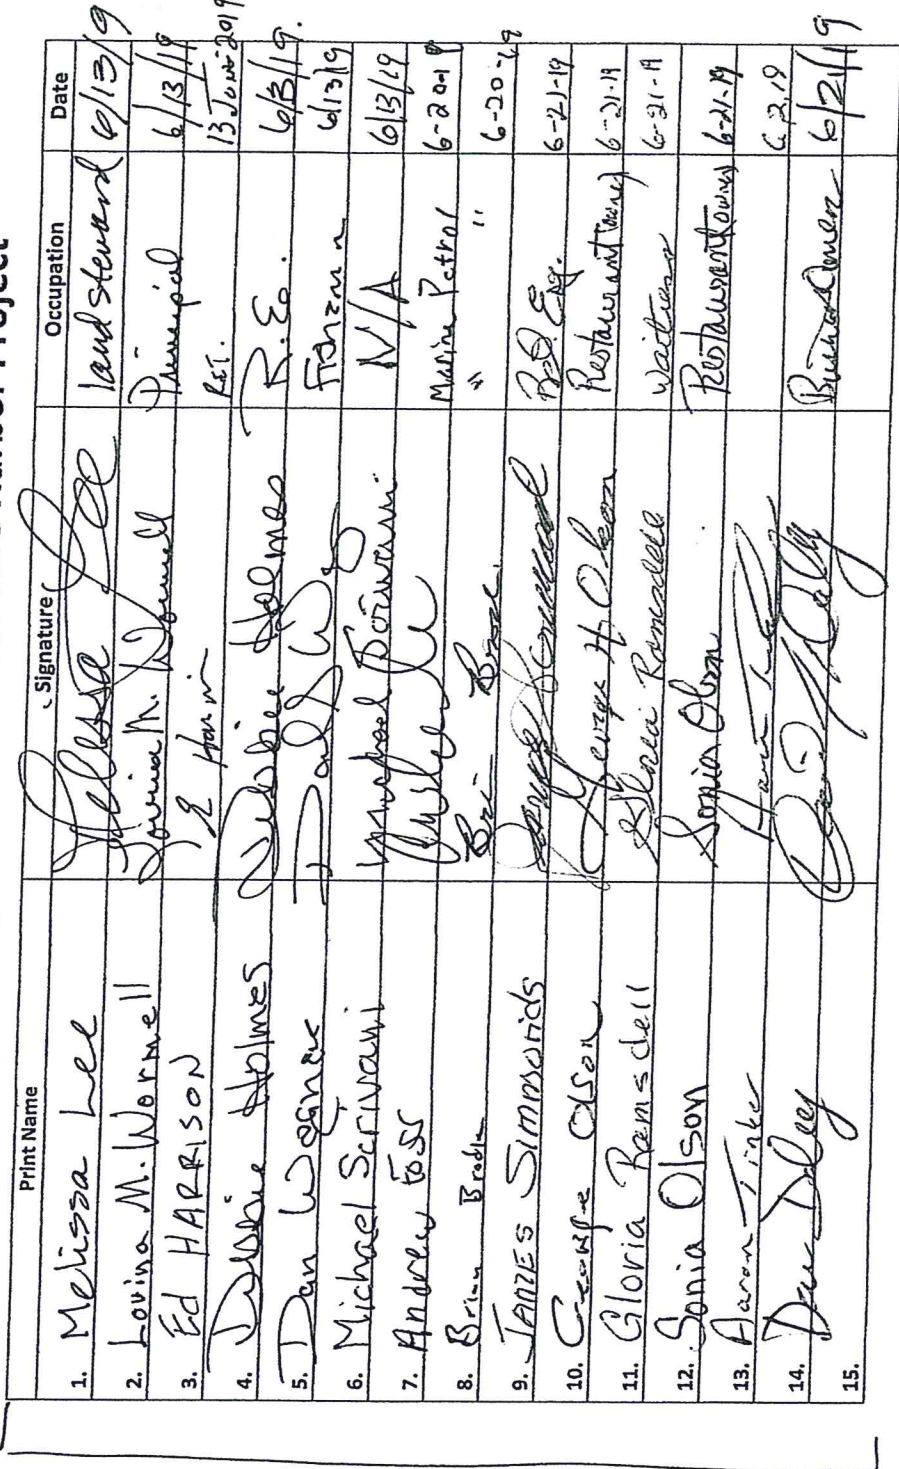 Project
Print Name Signature Occupation Date
1. Melissa Lee Melissa Lee land steward 6/13/19
2. Lovina M. Wormell Lovina M. Wormell Principal 6/13/19
3. Ed HARRISON E Harri RET. 13 June 2019
4. Debbie Holmes Debbie Holmes R.E. 6/13/19.
5. Dan Wagner 6/13/19
6. Michael Scrivani Michael Scrivani N/A 6/13/19
7. Andrew Foss Marine Patrol 6-20-19
8. Brian " " 6-20-19
9. JAMES Simmonds 6-21-19
10. George Olson George H Olson Restaurant owner 6-21-19
11. Gloria Ramsdell Gloria Ramsdell Waitress 6-21-19
12. Sonia Olson Sonia Olson Restaurant owner 6-21-19
13. Aaron
14. Daley 6/21/19
15.